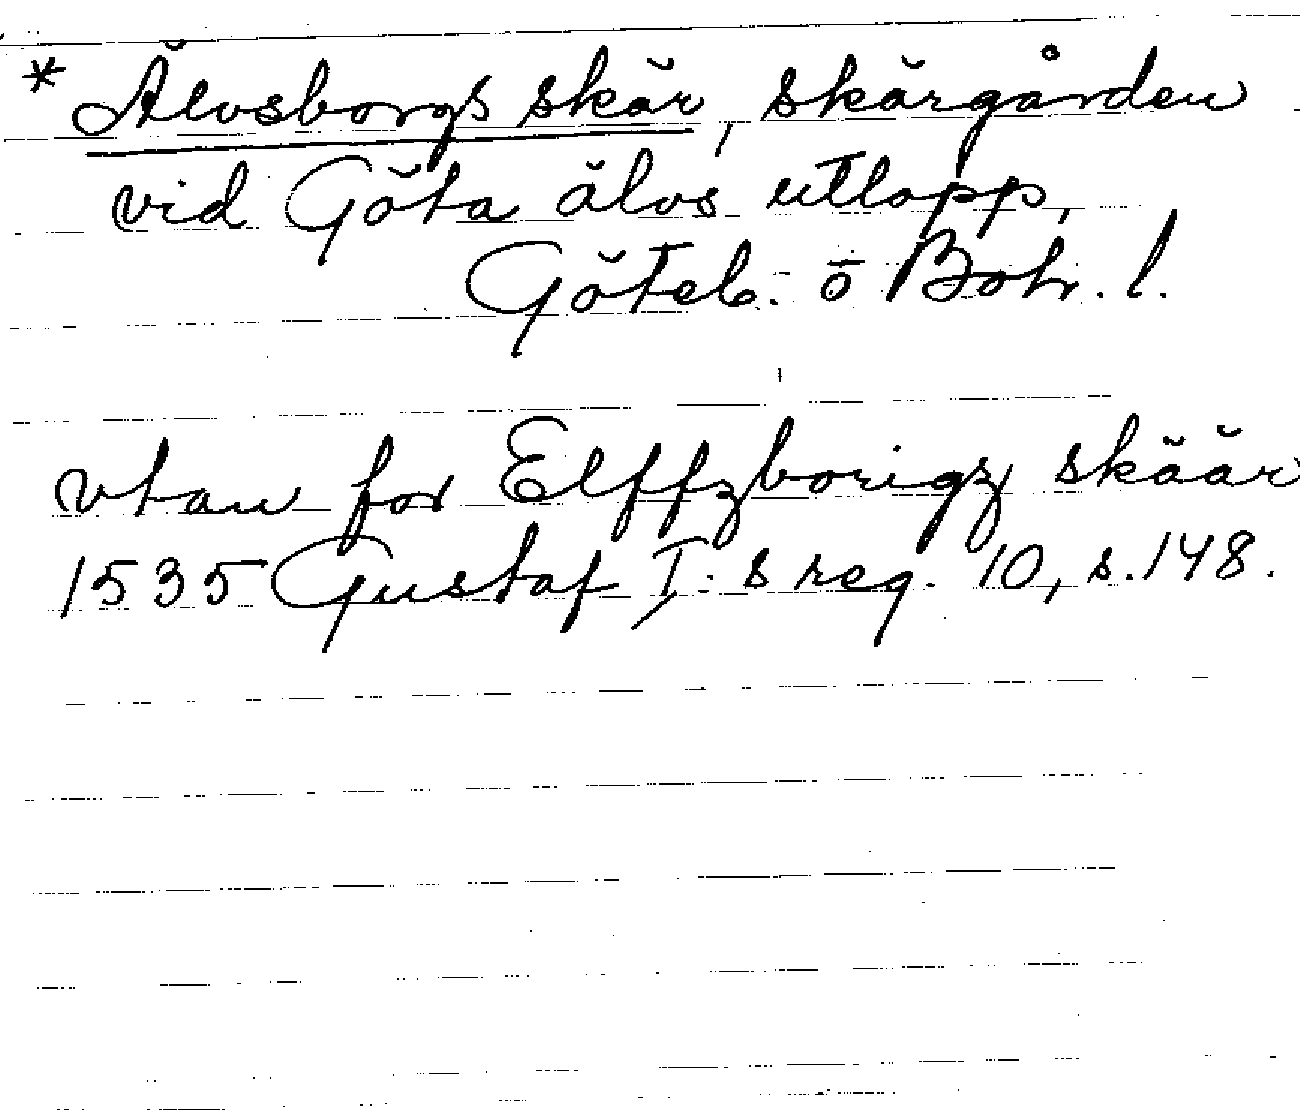 * Älvsborgs skär, skärgården
vid Göta älvs utlopp,
Göteb. o Boh. l.
vtan for Elffzborigz skäär
1535 Gustaf I:s reg. 10, s. 148.